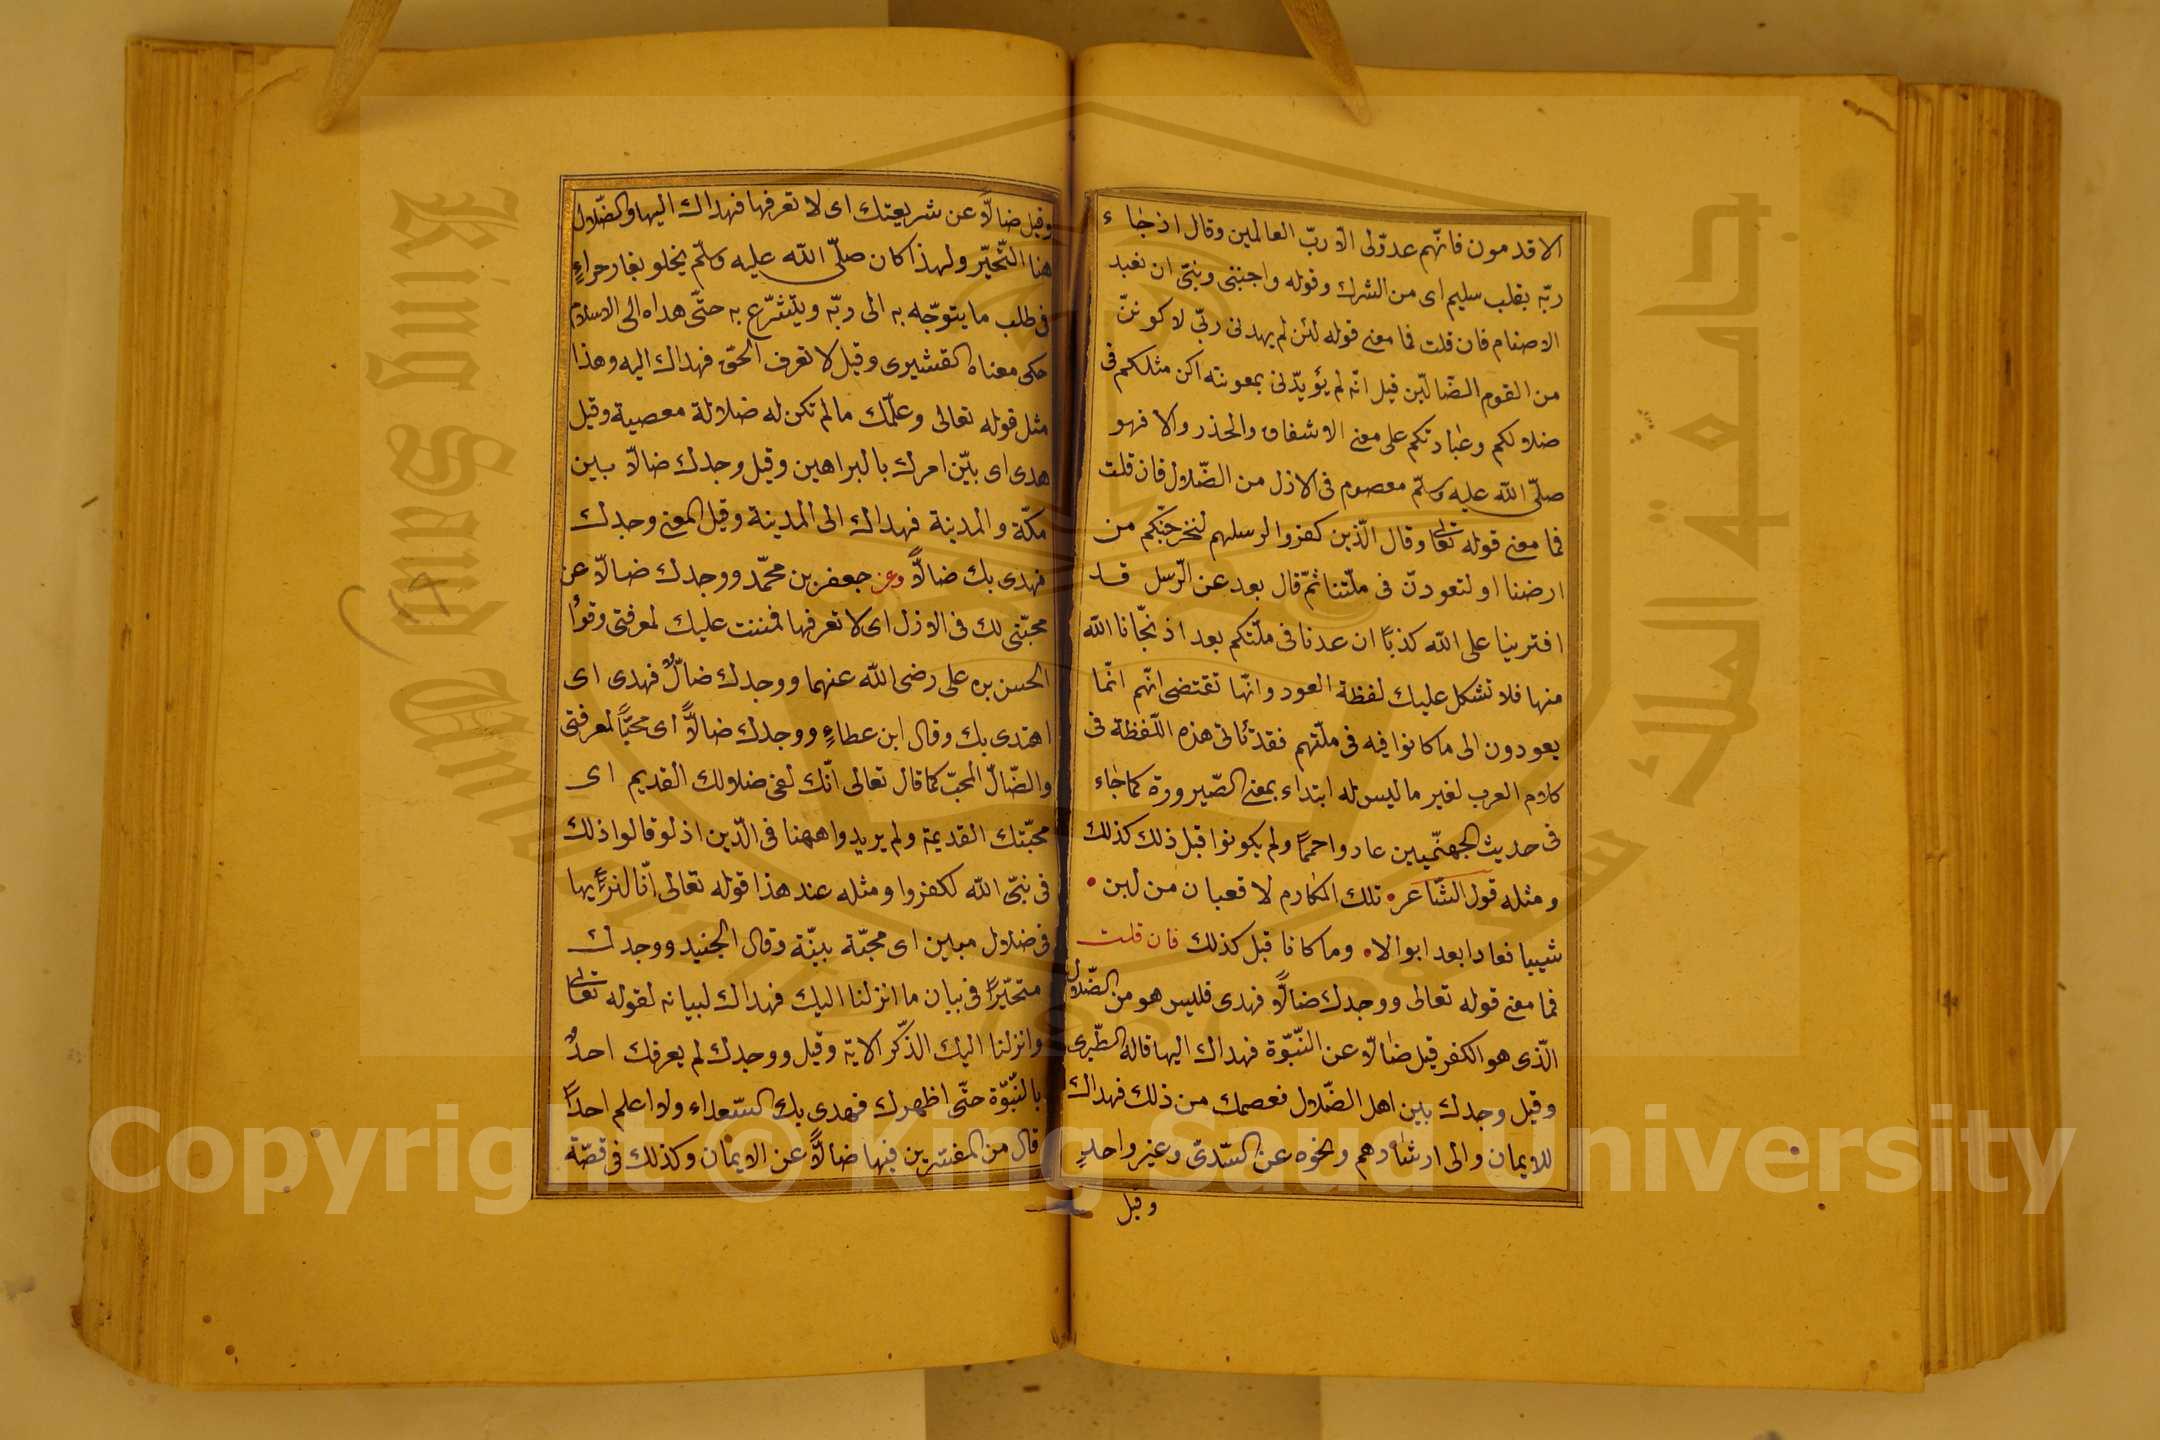 الاقدمون فانّهم عدوّلی الّا ربّ العالمين وقال اذ جاء
ربّه بقلب سليم ای من الشرك وقوله واجنبنی وبنیّ ان نعبد
الاصنام فان قلت فما معنی قوله لئن لم يهدنی ربّی لاكوننّ
من القوم الضّالّين قيل انّه لم يؤيّدنی بمعونته اكن مثلكم فی
ضلالكم وعبادتكم علی معنی الاشفاق والحذر والا فهو
صلّی الله عليه وسلّم معصوم فی الازل من الضّلال فان قلت
فما معنی قوله تعالی وقال الّذين كفروا لرسلهم لنخرجنّكم من
ارضنا او لتعودنّ فی ملّتنا ثمّ قال بعد عن الرّسل قد
افترينا علی الله كذبًا ان عدنا فی ملّتكم بعد اذ نجّانا الله
منها فلا تشكل عليك لفظة العود وانّها تقتضی انّهم انّما
يعودون الی ما كانوا فيه فی ملّتهم فقد تأتی هذه اللّفظة فی
كلام العرب لغير ما ليس له ابتداء بمعنی الصّيرورة كما جاء
فی حديث الجهنّميين عادوا حممًا ولم يكونوا قبل ذلك كذلك
ومثله قول الشّاعر تلك المكارم لا قعبان من لبن
شيبا فعادا بعد ابوالا وما كانا قبل كذلك فان قلت
فما معنی قوله تعالی ووجدك ضالًّا فهدی فليس هو من الضّلال
الّذی هو الكفر قيل ضالّا عن النّبوّة فهداك اليها قاله الطّبری
وقيل وجدك بين اهل الضّلال فعصمك من ذلك فهداك
للايمان والی ارشادهم ونحوه عن السّدّیّ وغير واحدٍ
وقيل
وقيل ضالًّا عن شريعتك ای لا تعرفها فهداك اليها والضّلال
هنا التّحيّر ولهذا كان صلّی الله عليه وسلّم يخلو بغار حراءٍ
فی طلب ما يتوجّه به الی ربّه ويتشرّع به حتّی هداه الی الاسلام
حكی معناه القشيری وقيل لا تعرف الحقّ فهداك اليه وهذا
مثل قوله تعالی وعلّمك ما لم تكن له ضلالة معصية وقيل
هدی ای بيّن امرك بالبراهين وقيل وجدك ضالّا بين
مكّة والمدينة فهداك الی المدينة وقيل المعنی وجدك
فهدی بك ضالًّا وعن جعفر بن محمّد ووجدك ضالّا عن
محبّتی لك فی الازل ای لا تعرفها فمننت عليك لمعرفتی وقرأ
الحسن بن علی رضی الله عنهما ووجدك ضالٌّ فهدی ای
اهتدی بك وقال ابن عطاءٍ ووجدك ضالًّا ای محبًّا لمعرفتی
والضّالّ المحبّ كما قال تعالی انّك لفی ضلالك القديم ای
محبّتك القديمة ولم يريدوا ههنا فی الّدين اذ لو قالوا ذلك
فی نبیّ الله لكفروا ومثله عند هذا قوله تعالی انّا لنريها
فی ضلال مبين ای محبّة بيّنة وقال الجنيد ووجدك
متحيّرًا فی بيان ما انزلنا اليك فهداك لبيانه لقوله تعالی
وانزلنا اليك الذّكر الاية وقيل ووجدك لم يعرفك احدٌ
بالنّبوّة حتّی اظهرك فهدی بك السّعداء ولا اعلم احدًا
قال من المفسّرين فيها ضالًّا عن الايمان وكذلك فی قصّة
King Saud University
جامعة الملك سعود
1957
Copyright © King Saud University